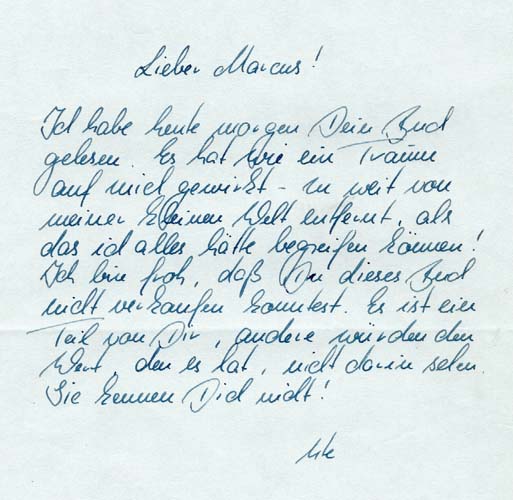 Lieber Marcus!
Ich habe heute morgen Dein Buch
gelesen. Es hat wie ein Traum
auf mich gewirkt - zu weit von
meiner kleinen Welt entfernt, als
das ich alles hätte begreifen können!
Ich bin froh, daß Du dieses Buch
nicht verkaufen konntest. Es ist ein
Teil von Dir, andere würden den
Wert, den es hat, nicht darin sehen.
Sie kennen Dich nicht!
Ute